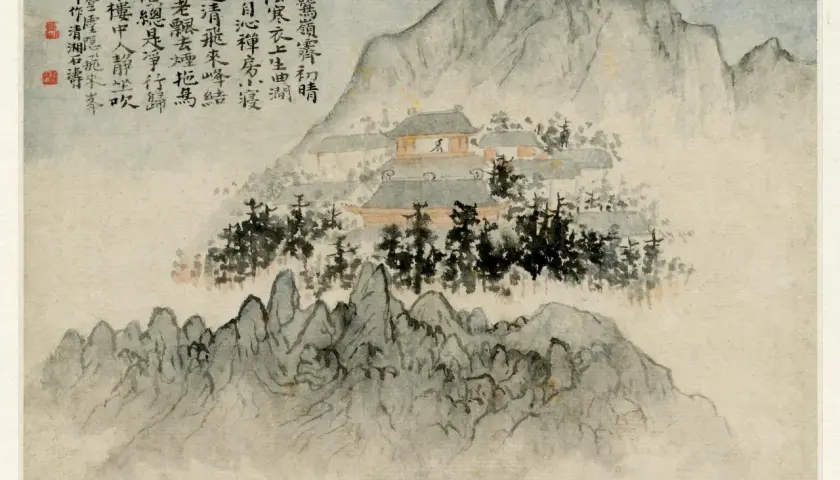 鷲嶺霽初晴
寒衣上生曲澗
自沁禪房小寢
清飛來峰結
老飄去煙拖為
總是淨行歸
樓中人靜坐吹
靈隱飛來峯
作清湘石濤